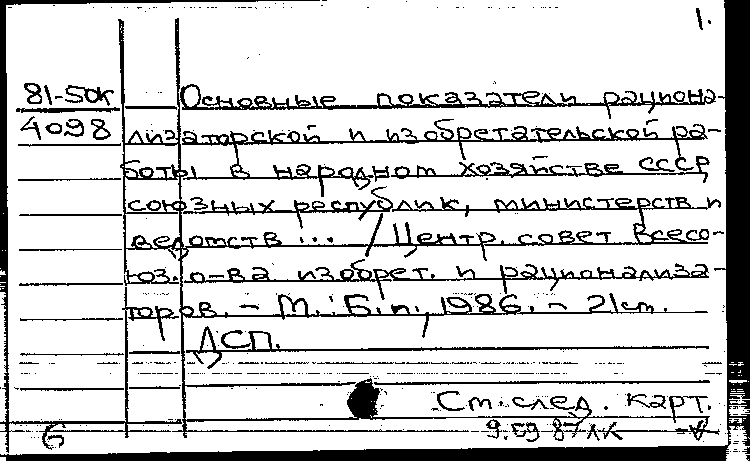 1.
81-50к Основные показатели рациона-
4098 лизаторской и изобретательской ра-
боты в народном хозяйстве СССР,
союзных республик, министерств и
ведомств ... / Центр. совет Всесо-
юз. о-ва изобрет. и рационализа-
торов. - М.: Б.и., 1986. - 21 см.
ДСП.
Ст. след. карт.
6 9.09 87 ЛК